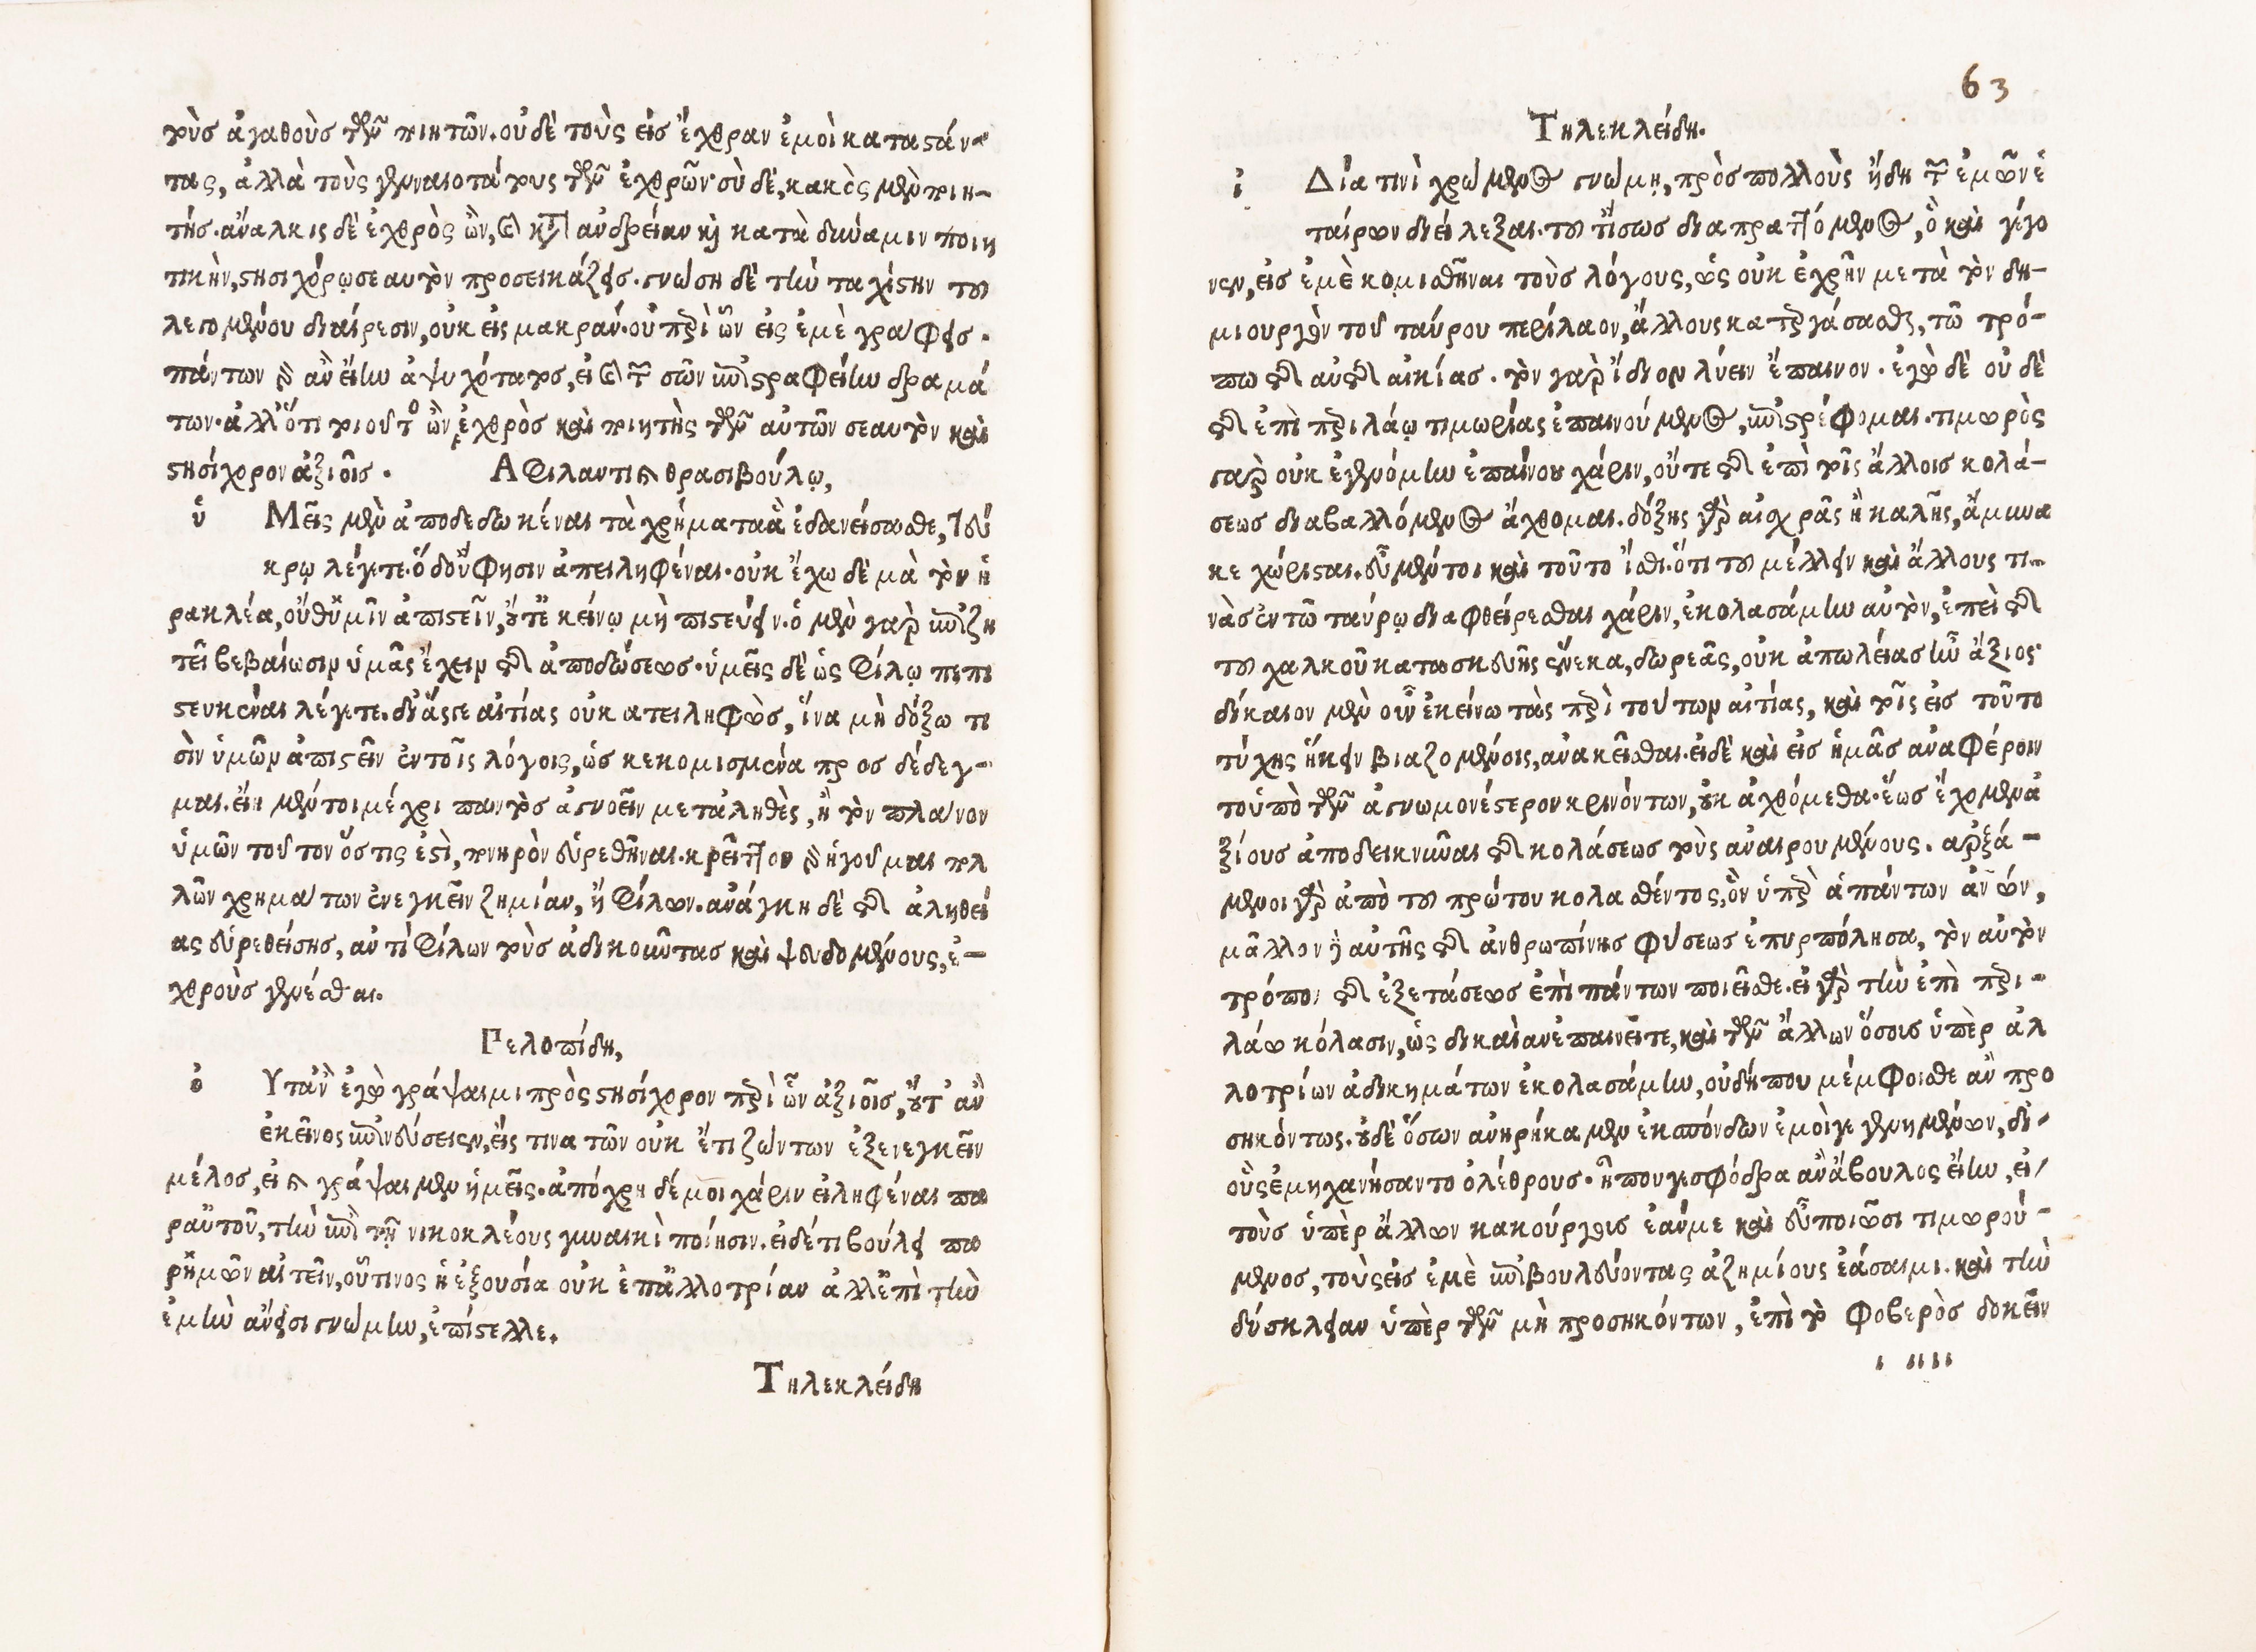 τοὺς ἀγαθοὺς τῶν ποιητῶν. οὐδὲ τοὺς εἰς ἔχθραν ἐμοὶ καταστάν-
τας, ἀλλὰ τοὺς γενναιοτάτους τῶν ἐχθρῶν· σὺ δὲ, κακὸς μὲν ποιη-
τής. ἄναλκις δὲ ἐχθρὸς ὢν, καὶ κατ' ἀνδρείαν καὶ κατὰ δύναμιν ποιη
τικὴν, στησιχόρῳ σεαυτὸν προσεικάζεις. γνώση δὲ τὴν ταχίστην τοῦ
λεγομένου διαίρεσιν, οὐκ εἰς μακράν. οὐ περὶ ὧν εἰς ἐμὲ γράφεις.
πάντων γὰρ ἂν εἴην ἀψυχότατος, εἰ καὶ τῶν σῶν ἐπιστραφείην δραμά
των. ἀλλ' ὅτι τοιοῦτος ὢν ἐχθρὸς καὶ ποιητὴς τῶν αὐτῶν σεαυτὸν καὶ
στησίχορον ἀξιοῖς. Αφιλαντι καὶ θρασιβούλῳ,
ὑ Μεῖς μὲν ἀποδεδωκέναι τὰ χρήματα ἃ ἐδανείσασθε,
κρῳ λέγετε. ὁ δ' οὔ φησιν ἀπειληφέναι. οὐκ ἔχω δὲ μὰ τὸν ἡ
ρακλέα, οὔθ' ὑμῖν ἀπιστεῖν, οὔτ' ἐκείνῳ μὴ πιστεύειν. ὁ μὲν γὰρ ἐπιζη
τεῖ βεβαίωσιν ὑμᾶς ἔχειν τῆς ἀποδώσεως. ὑμεῖς δὲ ὡς φίλῳ πεπι
στευκέναι λέγετε. δι' ἅς γε αἰτίας οὐκ ἀπειληφὼς, ἵνα μὴ δόξω τι
σὶν ὑμῶν ἀπιστεῖν ἐν τοῖς λόγοις, ὡς κεκομισμένα προσδέδεγ-
μαι. εἴη μέντοι μέχρι παντὸς ἀγνοεῖν με τἀληθὲς, ἢ τὸν πλάνον
ὑμῶν τοῦτον ὅστις ἐστὶ, πονηρὸν εὑρεθῆναι. κρεῖττον γὰρ ἡγοῦμαι πολ
λῶν χρημάτων ἐνεγκεῖν ζημίαν, ἢ φίλων. ἀνάγκη δὲ τῆς ἀληθεί
ας εὑρεθείσης, ἀντὶ φίλων τοὺς ἀδικοῦντας καὶ ψευδομένους, ἐ-
χθροὺς γενέσθαι.
Γελοπίδη,
ὁ Υτ' ἂν ἐγὼ γράψαιμι πρὸς στησίχορον περὶ ὧν ἀξιοῖς, οὔτ' ἂν
ἐκεῖνος ἐπινεύσειεν, εἴς τινα τῶν οὐκ ἔτι ζώντων ἐξενεγκεῖν
μέλος, εἰ καὶ γράψαιμεν ἡμεῖς. ἀπόχρη δέ μοι χάριν εἰληφέναι πα
ρ' αὐτοῦ, τὴν ἐπὶ τῇ νικοκλέους γυναικὶ ποίησιν. εἰ δέ τι βούλει πα
ρ' ἡμῶν αἰτεῖν, οὗτινος ἡ ἐξουσία οὐκ ἐπ' ἀλλοτρίαν ἀλλ' ἐπὶ τὴν
ἐμὴν ἄνεισι γνώμην, ἐπίστελλε.
Τηλεκλείδη
63
Τηλεκλείδη.
ἰ Δία τινὶ χρώμενος γνώμῃ, πρὸς πολλοὺς ἤδη τῶν ἐμῶν ἑ
ταίρων διείλεξαι. τοῦτ' ἴσως διαπραττόμενος, ὃ καὶ γέγο
νεν, εἰς ἐμὲ κομισθῆναι τοὺς λόγους, ὡς οὐκ ἐχρῆν μετὰ τὸν δη-
μιουργὸν τοῦ ταύρου περίλαον, ἄλλους κατεργάσασθαι, τῶ τρό-
πω τῆς αὐτῆς αἰκίας. τὸν γὰρ ἴδιον λύειν ἔπαινον. ἐγὼ δὲ οὐδὲ
τῆς ἐπὶ περιλάῳ τιμωρίας ἐπαινούμενος, ἐπιστρέφομαι. τιμωρὸς
γὰρ οὐκ ἐγενόμην ἐπαίνου χάριν, οὔτε τῆς ἐπὶ τοῖς ἄλλοις κολά-
σεως διαβαλλόμενος ἄχθομαι. δόξης γὰρ αἰσχρᾶς ἢ καλῆς, ἄμυνα
κεχώρισται. εὖ μέντοι καὶ τοῦτο ἴσθι. ὅτι τοῦ μέλλειν καὶ ἄλλους τι-
νὰς ἐν τῶ ταύρῳ διαφθείρεσθαι χάριν, ἐκολασάμην αὐτὸν, ἐπεὶ τῆς
τοῦ χαλκοῦ κατασκευῆς ἕνεκα, δωρεᾶς, οὐκ ἀπωλείας ἦν ἄξιος·
δίκαιον μὲν οὖν ἐκείνω τὰς περὶ τούτων αἰτίας, καὶ τοῖς εἰς τοῦτο
τύχης ἥκειν βιαζομένοις, ἀνακεῖσθαι. εἰ δὲ καὶ εἰς ἡμᾶς ἀναφέροιν
το ὑπὸ τῶν ἀγνωμονέστερον κρινόντων, οὐκ ἀχθόμεθα. ἕως ἔχομεν ἀ
ξίους ἀποδεικνύναι τῆς κολάσεως τοὺς ἀναιρουμένους. ἀρξά-
μενοι γὰρ ἀπὸ τοῦ πρώτου κολασθέντος, ὃν ὑπὲρ ἁπάντων ἀνῶν,
μᾶλλον ἢ αὐτῆς τῆς ἀνθρωπίνης φύσεως ἐπυρπόλησα, τὸν αὐτὸν
τρόπον τῆς ἐξετάσεως ἐπὶ πάντων ποιεῖσθε. εἰ γὰρ τὴν ἐπὶ περι-
λάω κόλασιν, ὡς δικαίαν ἐπαινεῖτε, καὶ τῶν ἄλλων ὅσοις ὑπὲρ ἀλ
λοτρίων ἀδικημάτων ἐκολασάμην, οὐδήπου μέμφοισθε ἂν προ
σηκόντως. οὐδὲ ὅσων ἀνῃρήκαμεν ἐκσπόνδων ἐμοί γε γενημένων, δι'
οὓς ἐμηχανήσαντο ὀλέθρους. ἦ που γε σφόδρα ἂν ἄβουλος εἴην, εἰ
τοὺς ὑπὲρ ἄλλων κακούργους ἐάν με καὶ εὖ ποιῶσι τιμωρού-
μενος, τοὺς εἰς ἐμὲ ἐπιβουλεύοντας ἀζημίους ἐάσαιμι. καὶ τὴν
δύσκλειαν ὑπὲρ τῶν μὴ προσηκόντων, ἐπὶ τὸ φοβερὸς δοκεῖν
ι ιιιι